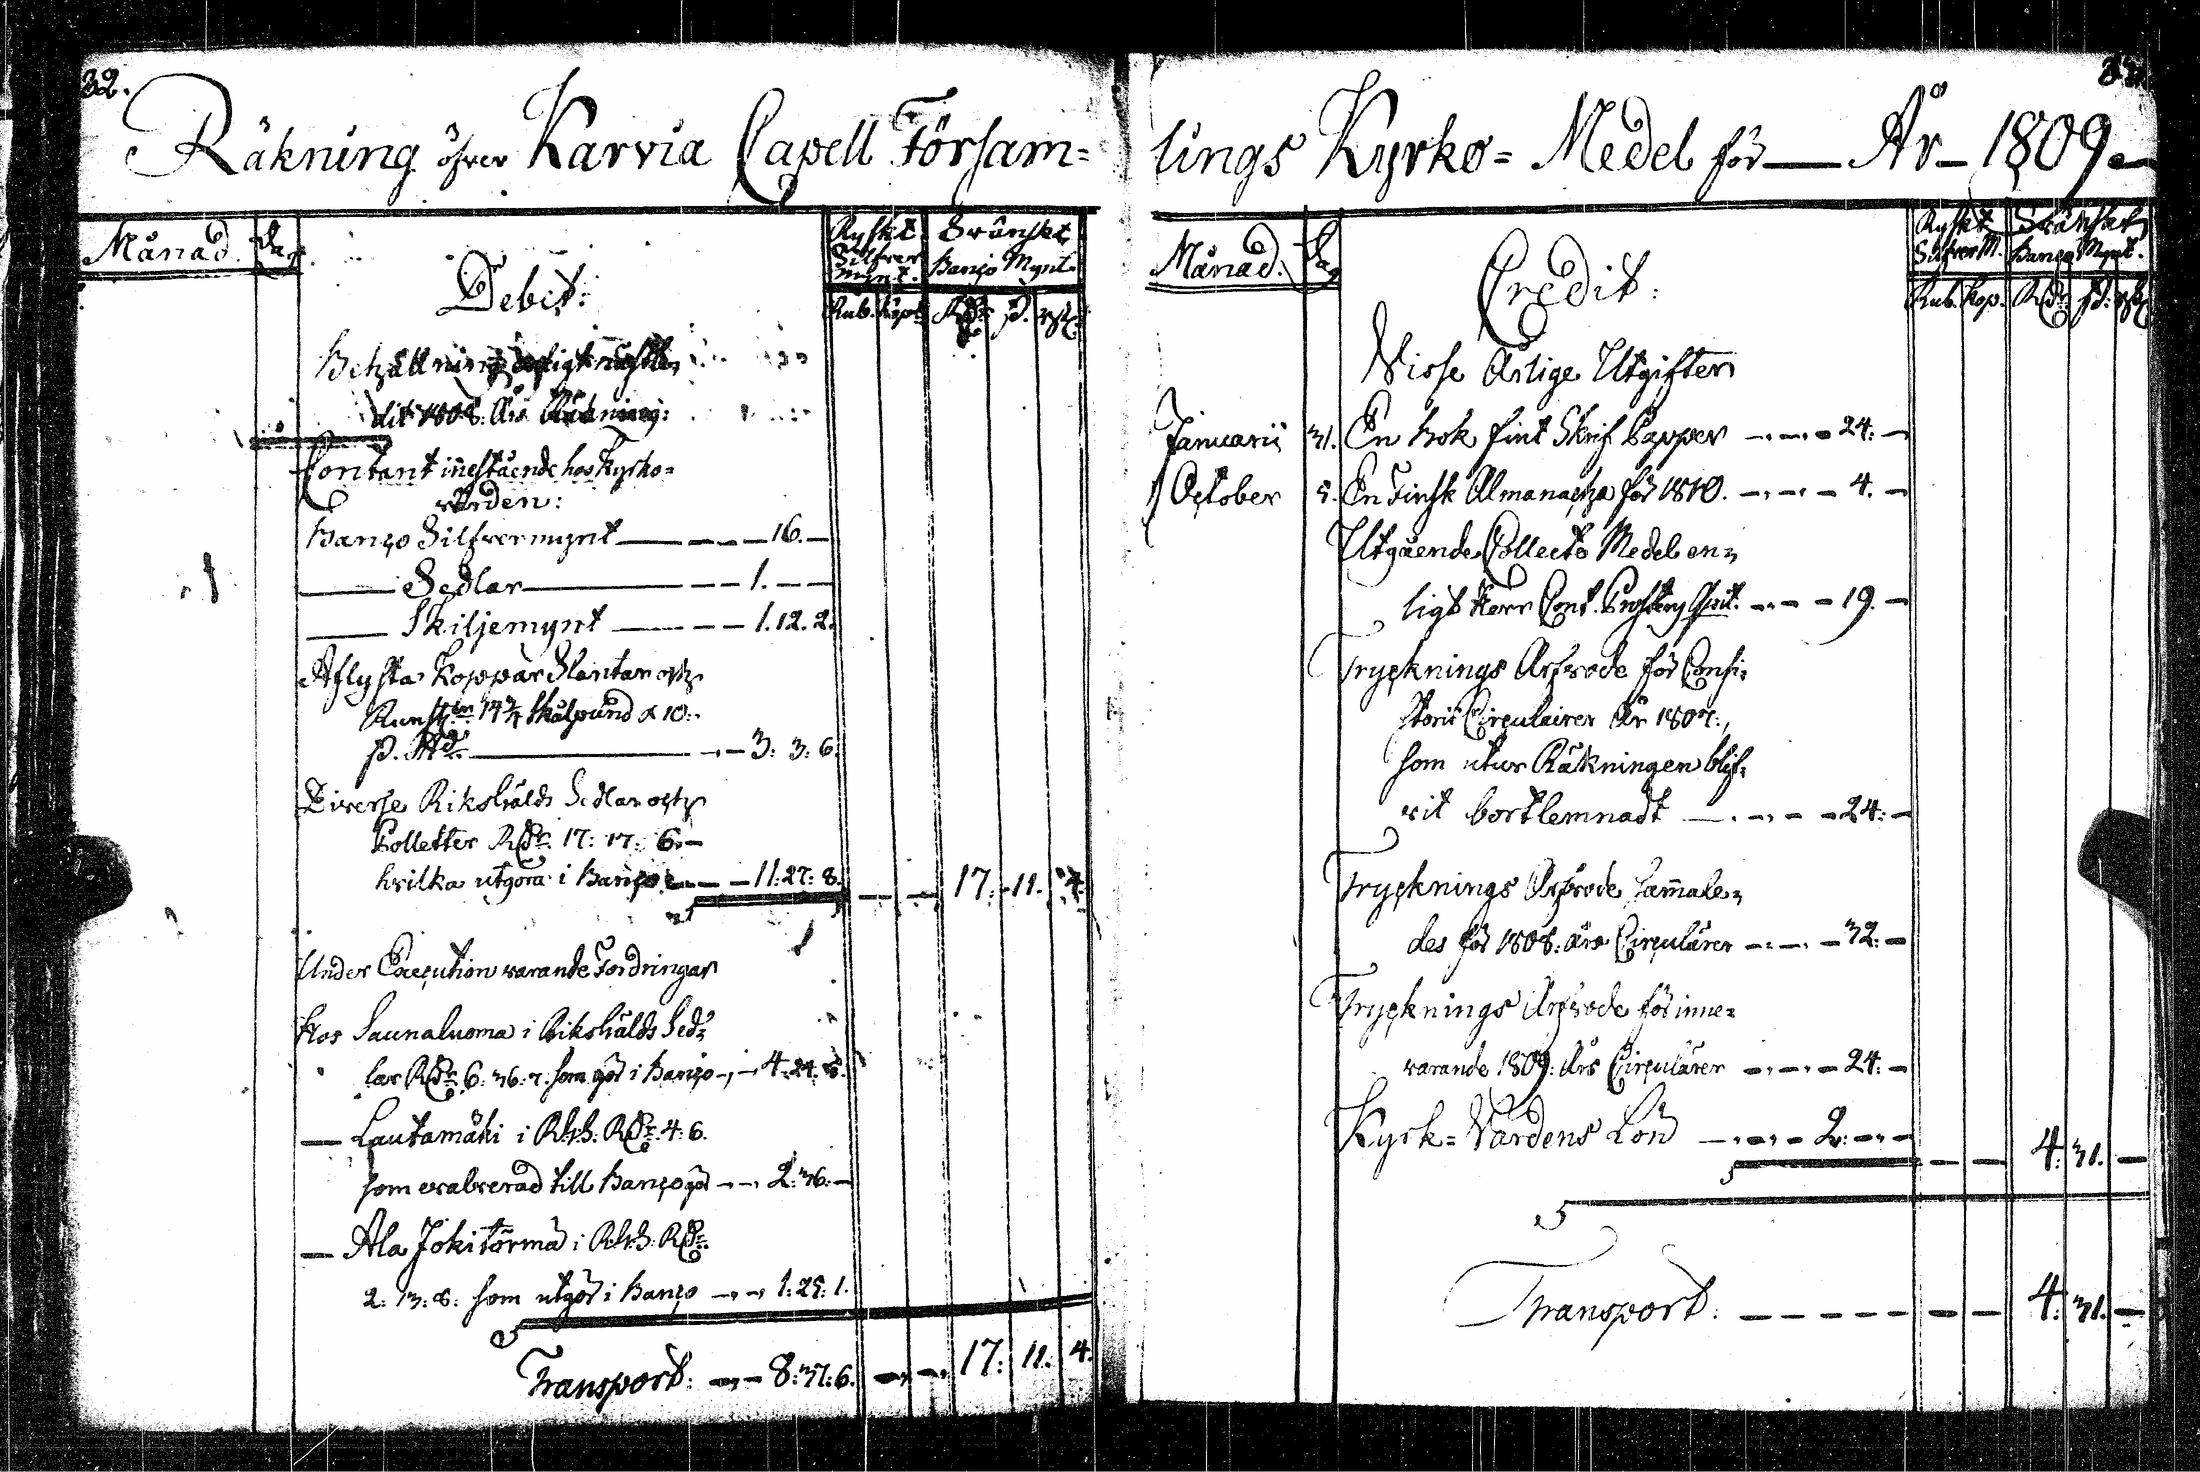 32.
Räkning öfver Karvia Capell Försam=
Månad. Dag.
Debet:
Ryskt Silfver Mynt.
Svänskt Banco Mynt.
Rub. Kop. RDr. ß. rst.
Behållning enligt nästle,
dit 1808. Års Räkning:
Contant inestående hos Kyrko=
värden:
Banco Silfvermynt — 16. —
— Sedlar — 1. — —
— Skiljemynt — 1. 12. 2.
Aflysta Koppar Slantar och
Runst. 14 3/4 Skålpund a 10.
ß. — 3: 3: 6.
Diverse Riksgälds Sedlar och
Polletter RDr. 17: 17: 6. —
hvilka utgöra i Banco — 11: 27: 8. — — 17: 11. 4.
Under Execution varande Fordringar
Hos Saunaluoma i Riksgälds Sed=
lar RDr. 6: 36: 7. som gör i Banco — 4: 24: 8.
— Lautamäki i R.k.s: RDr. 4: 6.
som evalverad till Banco gör — 2: 36. —
— Ala Jokitörmä i R.k.s: RDr.
2: 13: 8: som utgör i Banco — 1: 25: 1.
Transport: — 8: 37: 6. — — 17: 11: 4.
33.
lings Kyrko= Medel för — År — 1809. —
Månad. Dag
Credit:
Ryskt Silfver M.
Svänskt Banco Mynt.
Rub. Kop. RDr. ß: rst.
Visse Årlige Utgifter
Januarii 31. En bok fint Skrif Papper — 24: —
October 5. En Finsk Almanacha för 1810. — 4. —
Utgående Collecte Medel en=
ligt Herr Cont. Prosten Qvit. — 19. —
Trycknings Arfvode för Consi=
storii Circulairer År 1807:,
som utur Räkningen blif=
vit bortlemnadt — 24: —
Trycknings Arfvode samale=
des för 1808: års Circulärer — 32: —
Trycknings Arfvode för inne=
varande 1809: Års Circulärer — 24: —
Kyrk= Vårdens Lön — 2: — — — — 4: 31. —
Transport: — — — 4: 31. —